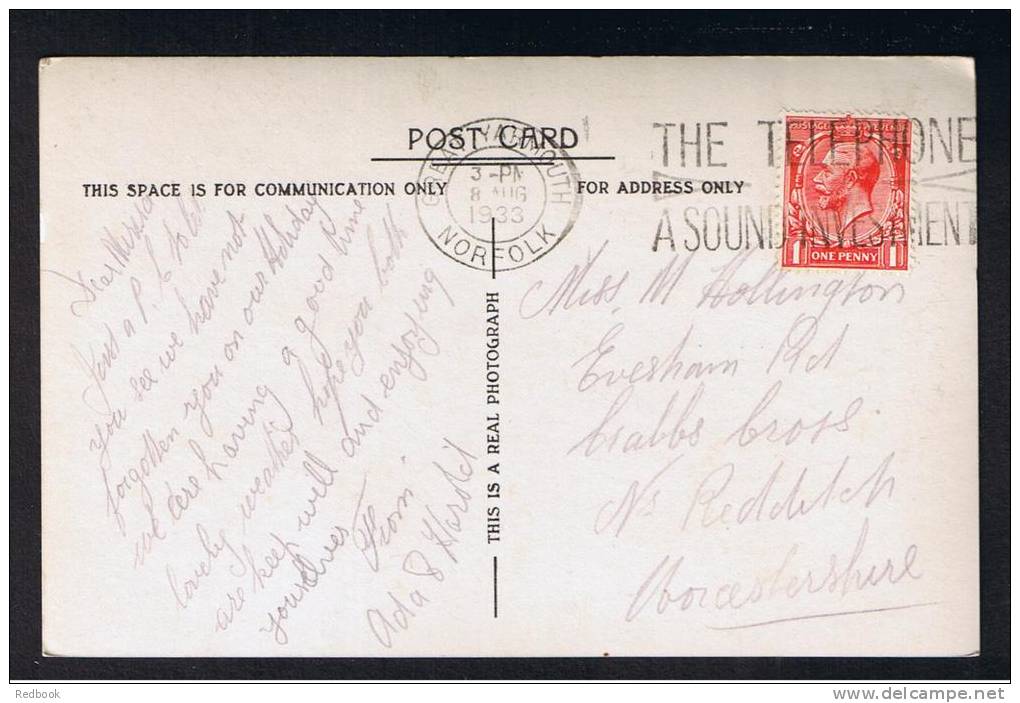 POST CARD
THIS SPACE IS FOR COMMUNICATION ONLY
FOR ADDRESS ONLY
GREAT YARMOUTH
3-PM
8 AUG
1933
NORFOLK
THE TELEPHONE
A SOUND INVESTMENT
POSTAGE REVENUE
1 ONE PENNY 1
THIS IS A REAL PHOTOGRAPH
Dear
Just a P.C to let
you see we have not
forgotten you on our Holiday
we are having a good time
lovely weather hope you both
are keep well and enjoying
yourselves
From
Ada & Harold
Miss. M Hollington
Evesham Rd
Crabbs Cross
Nr Redditch
Worcestershire
Redbook
www.delcampe.net